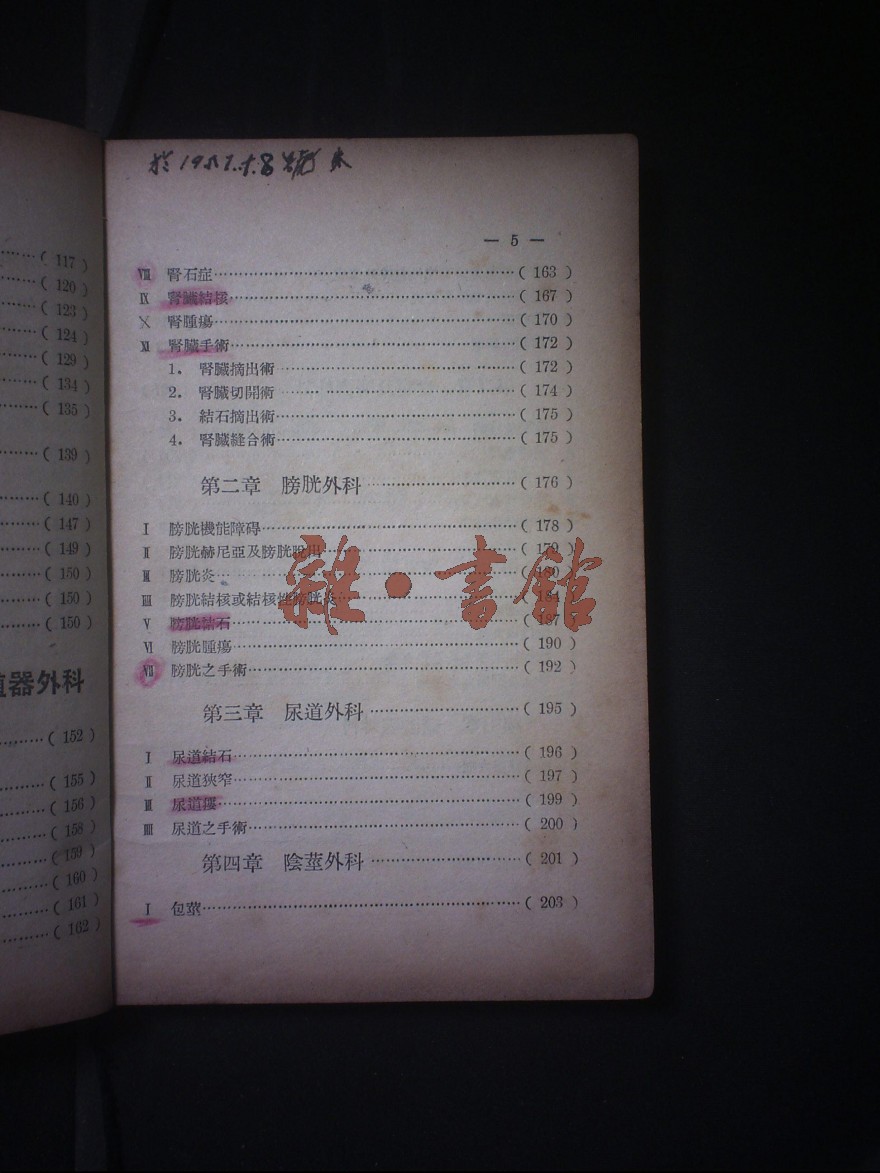 117 )
120 )
123 )
( 124 )
( 129 )
( 134 )
( 135 )
( 139 )
( 140 )
( 147 )
( 149 )
( 150 )
( 150 )
( 150 )
器外科
( 152 )
( 155 )
( 156 )
( 158 )
( 159 )
( 160 )
( 161 )
( 162 )
— 5 —
Ⅷ 腎石症……( 163 )
Ⅸ 腎臟結核……( 167 )
Ⅹ 腎腫瘍……( 170 )
Ⅺ 腎臟手術……( 172 )
1. 腎臟摘出術……( 172 )
2. 腎臟切開術……( 174 )
3. 結石摘出術……( 175 )
4. 腎臟縫合術……( 175 )
第二章 膀胱外科……( 176 )
Ⅰ 膀胱機能障碍……( 178 )
Ⅱ 膀胱赫尼亞及膀胱脫出……( 179 )
Ⅲ 膀胱炎……
IIII 膀胱結核或結核性膀胱炎……( 184 )
Ⅴ 膀胱結石……( 187 )
Ⅵ 膀胱腫瘍……( 190 )
Ⅶ 膀胱之手術……( 192 )
第三章 尿道外科……( 195 )
Ⅰ 尿道結石……( 196 )
Ⅱ 尿道狹窄……( 197 )
Ⅲ 尿道瘻……( 199 )
IIII 尿道之手術……( 200 )
第四章 陰莖外科……( 201 )
Ⅰ 包莖……( 203 )
雜·書館